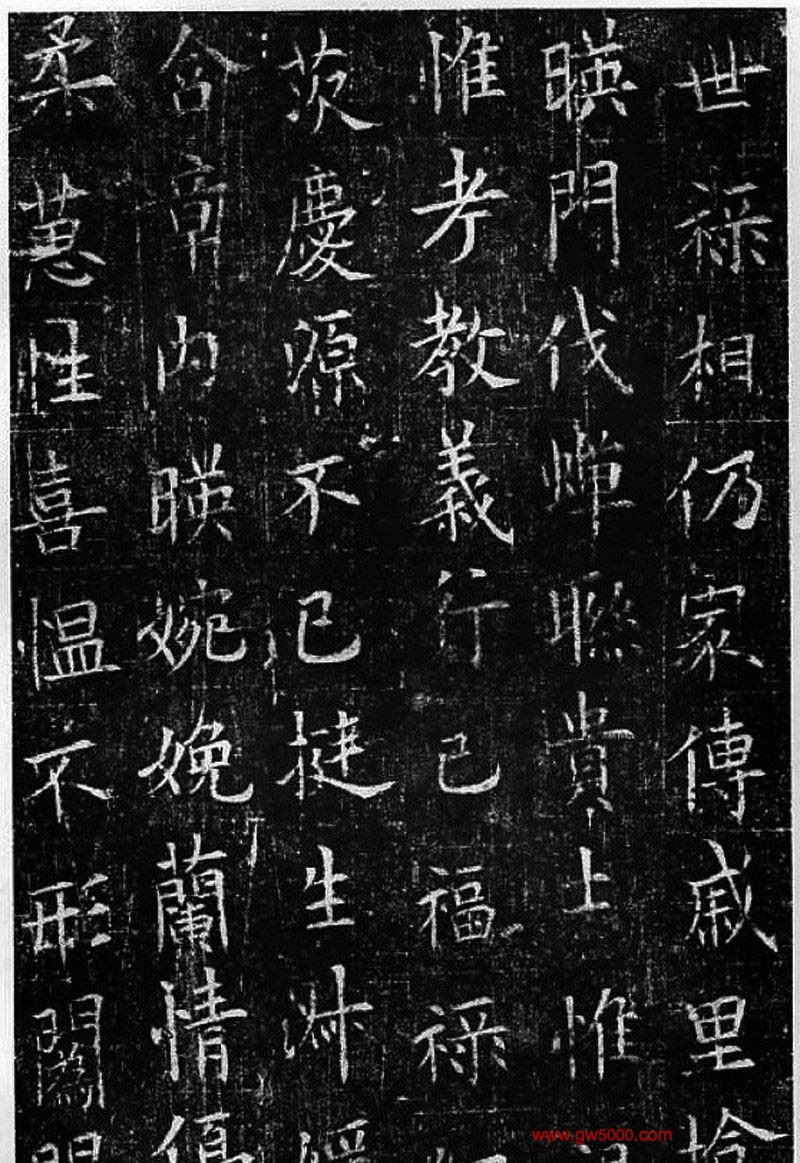 世祿相仍家傳戚里
暎門伐蟬聯貴上惟
惟考教義行己福祿
茨慶源不已挻生淋
含章内暎婉娩蘭情
柔蕙性喜愠不形闈
www.gw5000.com